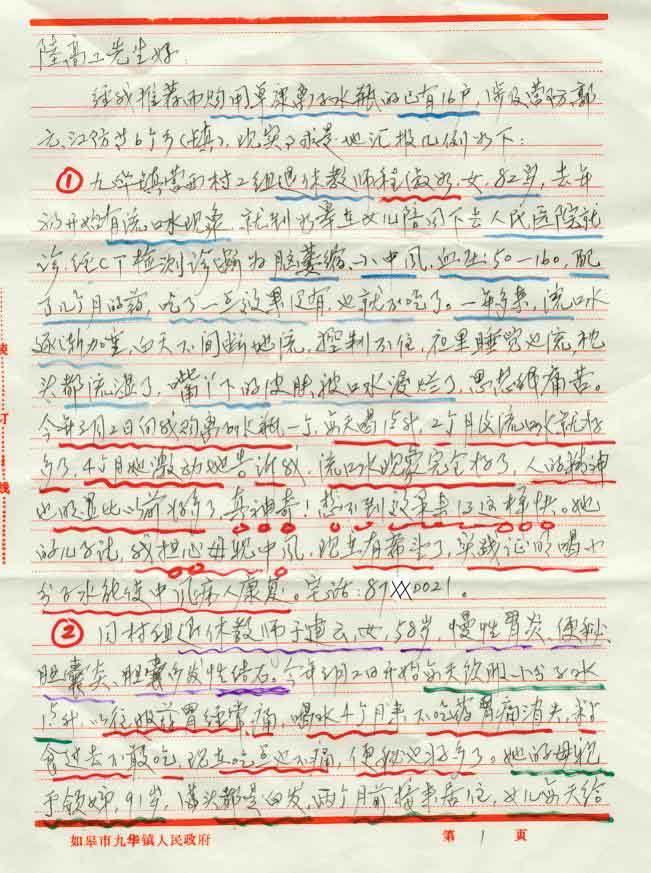 陆高工先生好:
经我推荐而购用单凍离子水瓶的已有16户,涉及营防、郭
元、江防等6个乡(镇),现实事求是地汇报几例如下:
① 九华镇营西村2组退休教师程俊如,女,82岁,去年
初开始有流口水现象,就到如皋在女儿陪同下去人民医院就
诊,经CT检测诊断为脑萎缩、小中风,血压:50一160,配
了几个月的药,吃了一点效果没有,也就不吃了。一年多来,流口水
逐渐加重,白天不间断地流,控制不住,夜里睡觉也流,枕
头都流湿了,嘴丫下的皮肤被口水浸烂了,思想很痛苦。
今年3月2日向我购离子水瓶一个,每天喝1.5升,2个月仅流口水就好
多了,4个月她激动地告诉我,流口水现象完全好了,人的精神
也明显比以前好多了,真神奇!想不到效果真得这样快。她
的儿子说,我担心母亲中风,现在有希望了,实践证明喝小
分子水能使中风病人康复。宅话:87XX0021。
② 同村组退休教师于建云,女,58岁,慢性胃炎、便秘、
胆囊炎、胆囊多发性结石。今年3月2日开始每天饮服小分子水
1.5升,以往服药胃经常痛,喝水4个月来,不吃药胃痛消失,粘
食过去不敢吃,现在吃点也不痛,便秘也好多了。她的母亲
于领娣,91岁,满头都是白发,两个月前接来居住,女儿每天给
如皋市九华镇人民政府 第 1 页
装 订 线